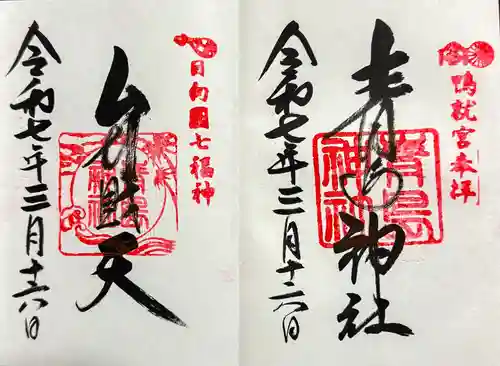 鴨就宮奉拝
青島神社
青島神社
令和七年三月十六日
日向国七福神
弁財天
青島神社
令和七年三月十六日